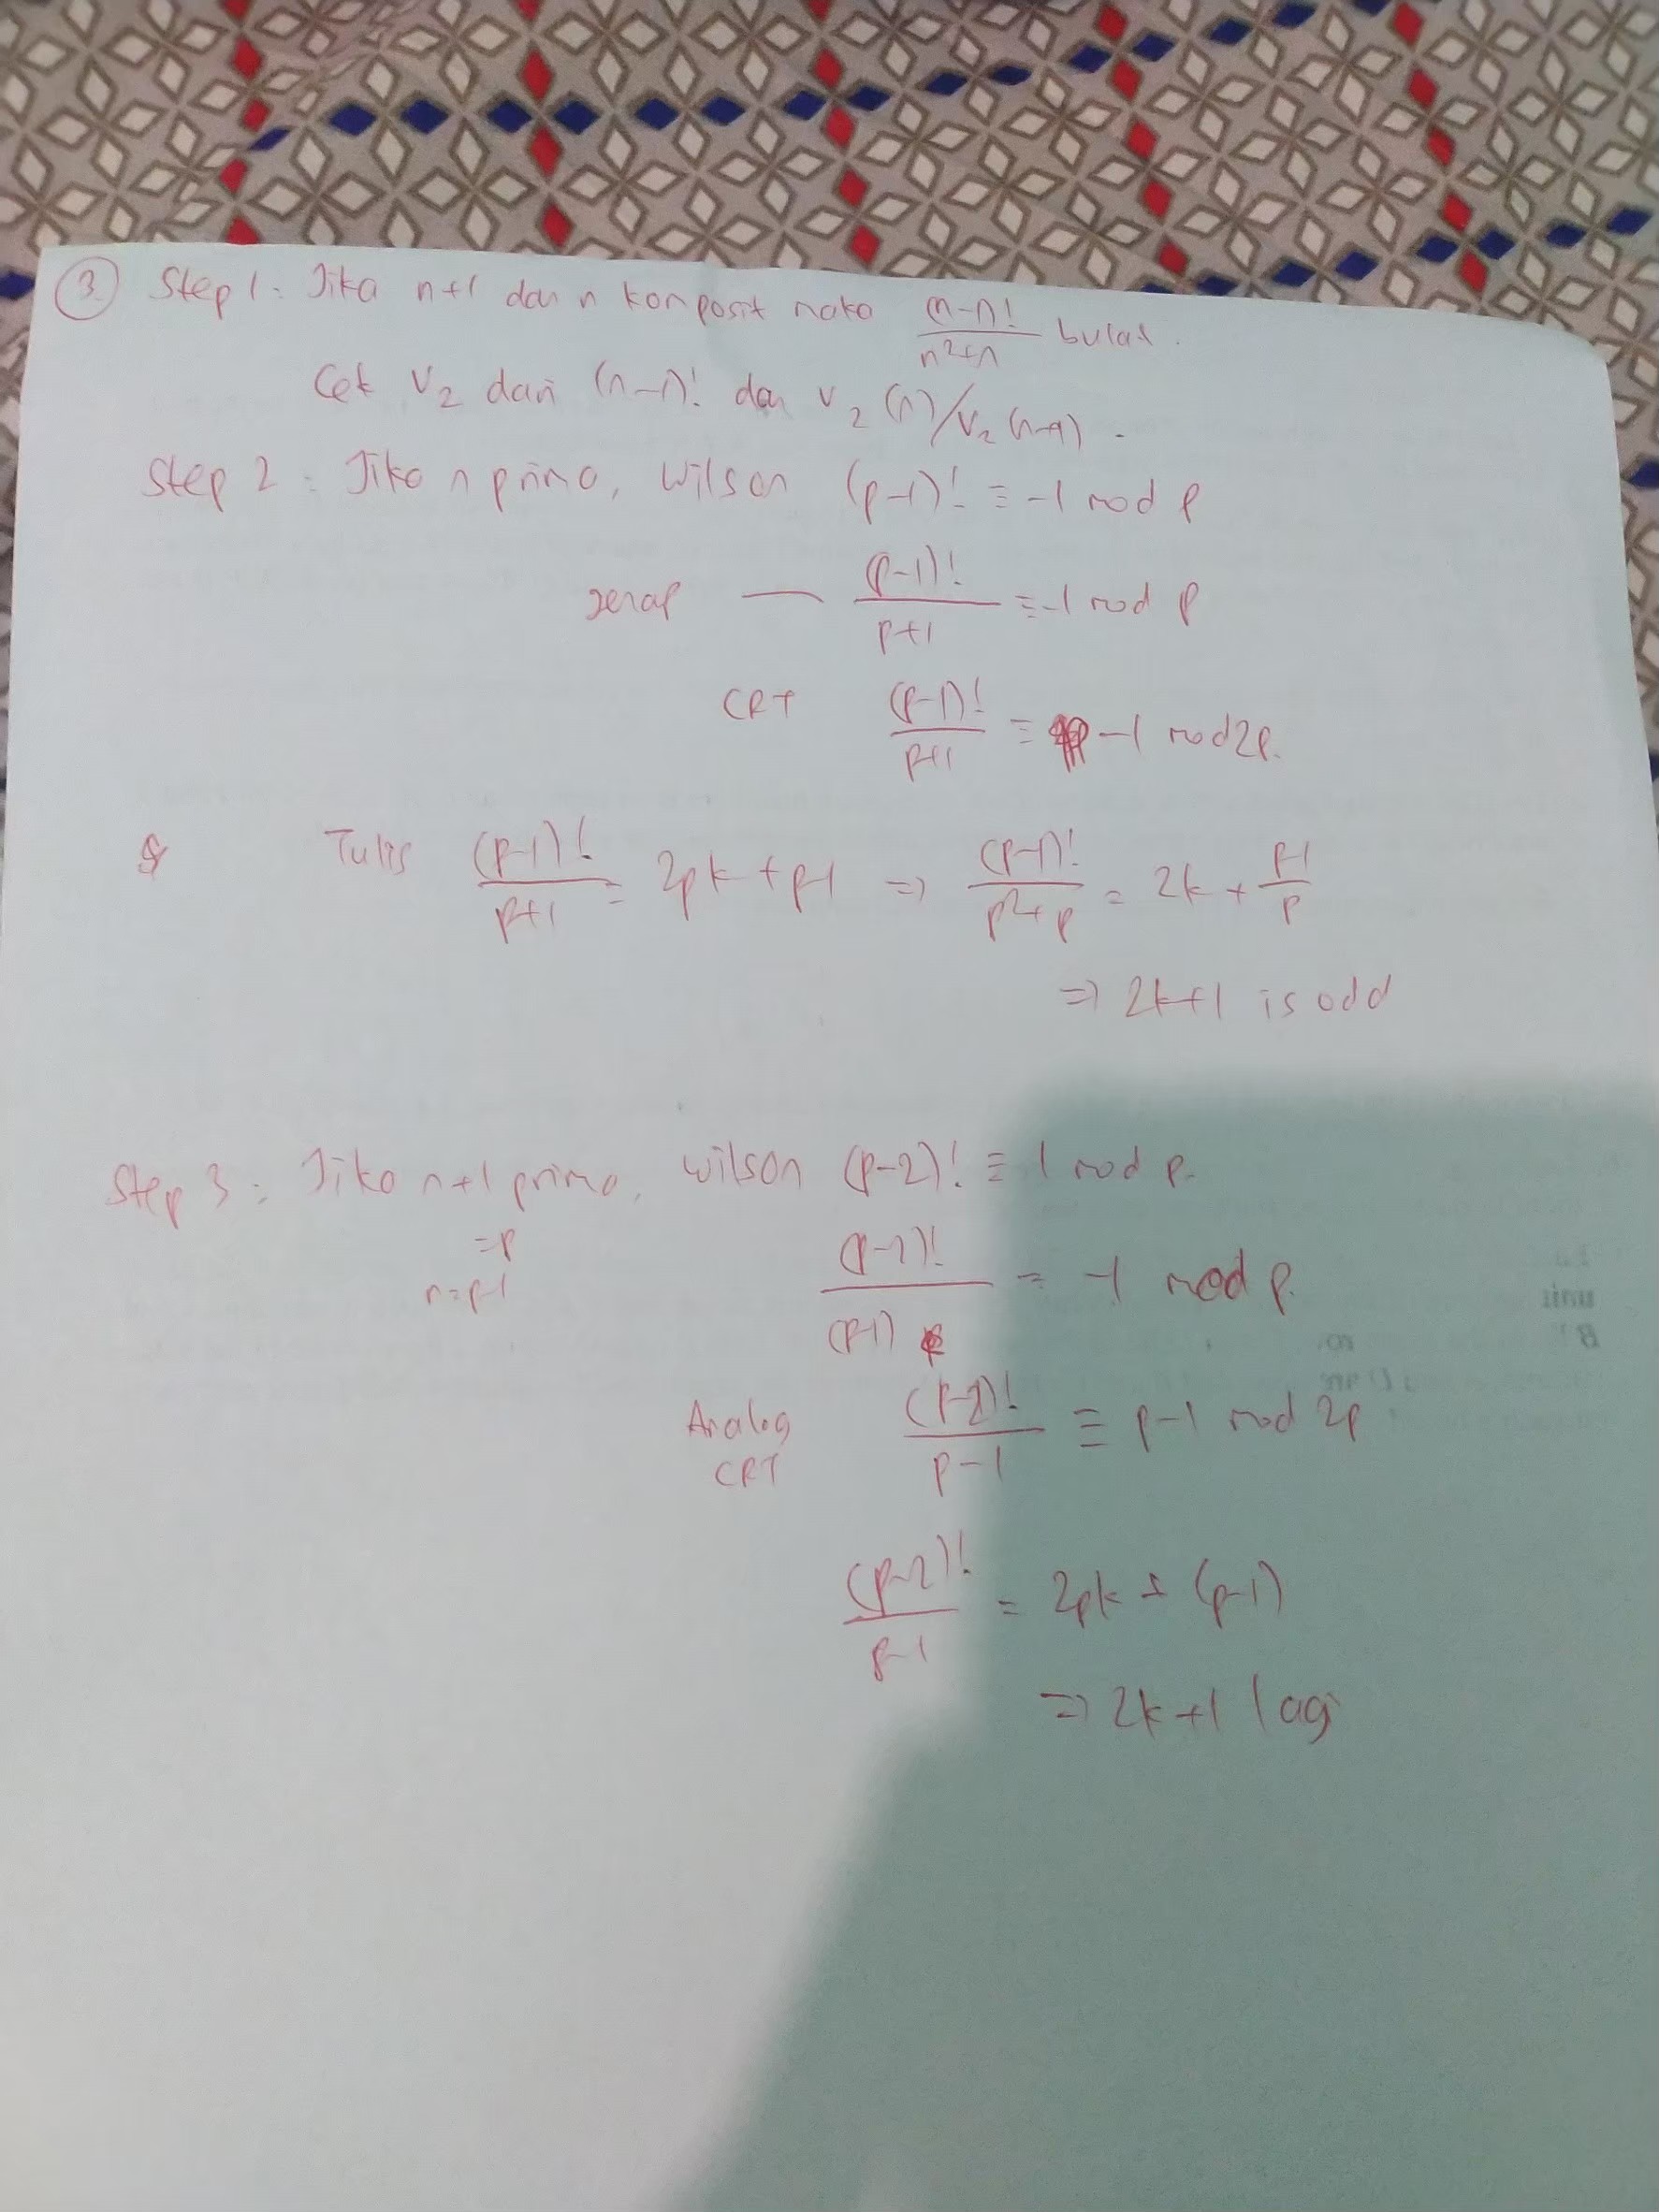 ③ Step 1: Jika n+1 dan n komposit maka (n-1)!/(n²+n) bulat.
Cek v₂ dari (n-1)! dan v₂(n)/v₂(n+1).
Step 2: Jika n prima, Wilson (p-1)! ≡ -1 mod p
genap — (p-1)!/(p+1) ≡ -1 mod p
CRT (p-1)!/(p+1) ≡ p-1 mod 2p.
Tulis (p-1)!/(p+1) = 2pk + p-1 ⇒ (p-1)!/(p²+p) = 2k + (p-1)/p
⇒ 2k+1 is odd
Step 3: Jika n+1 prima, Wilson (p-2)! ≡ 1 mod p.
=p
n=p-1
(p-2)!/(p-1) = -1 mod p.
Analog (p-2)!/(p-1) ≡ p-1 mod 2p
CRT
(p-2)!/(p-1) = 2pk + (p-1)
⇒ 2k+1 lagi